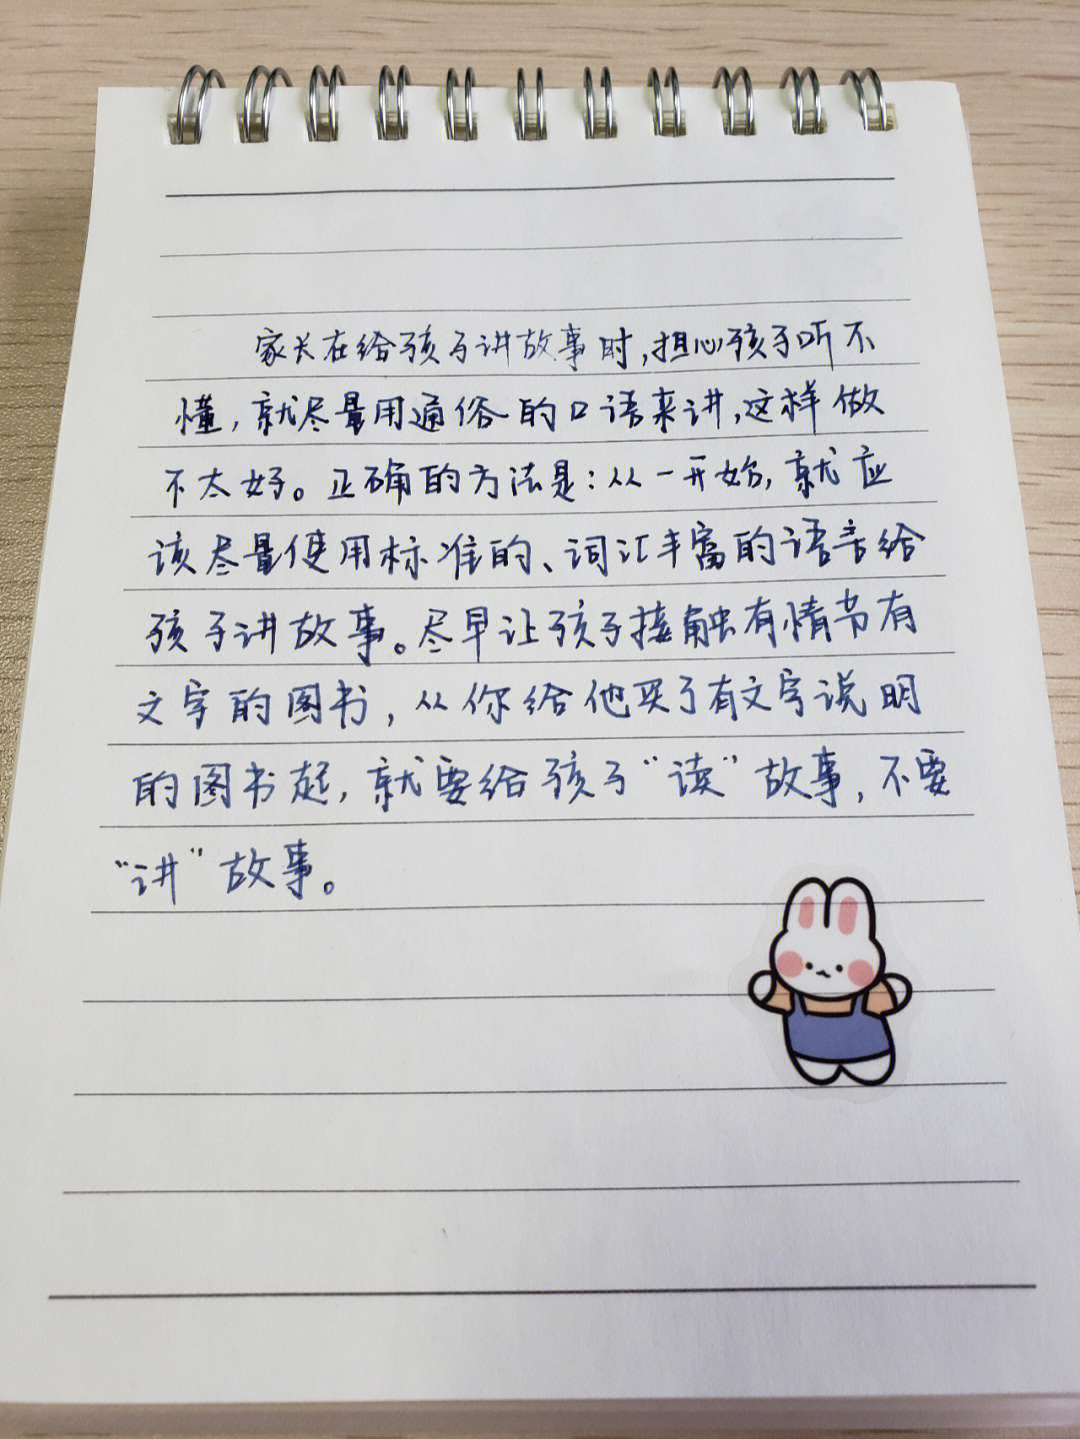 家长在给孩子讲故事时,担心孩子听不
懂,就尽量用通俗的口语来讲,这样做
不太好。正确的方法是:从一开始,就应
该尽量使用标准的、词汇丰富的语言给
孩子讲故事。尽早让孩子接触有情节有
文字的图书,从你给他买了有文字说明
的图书起,就要给孩子“读”故事,不要
“讲”故事。